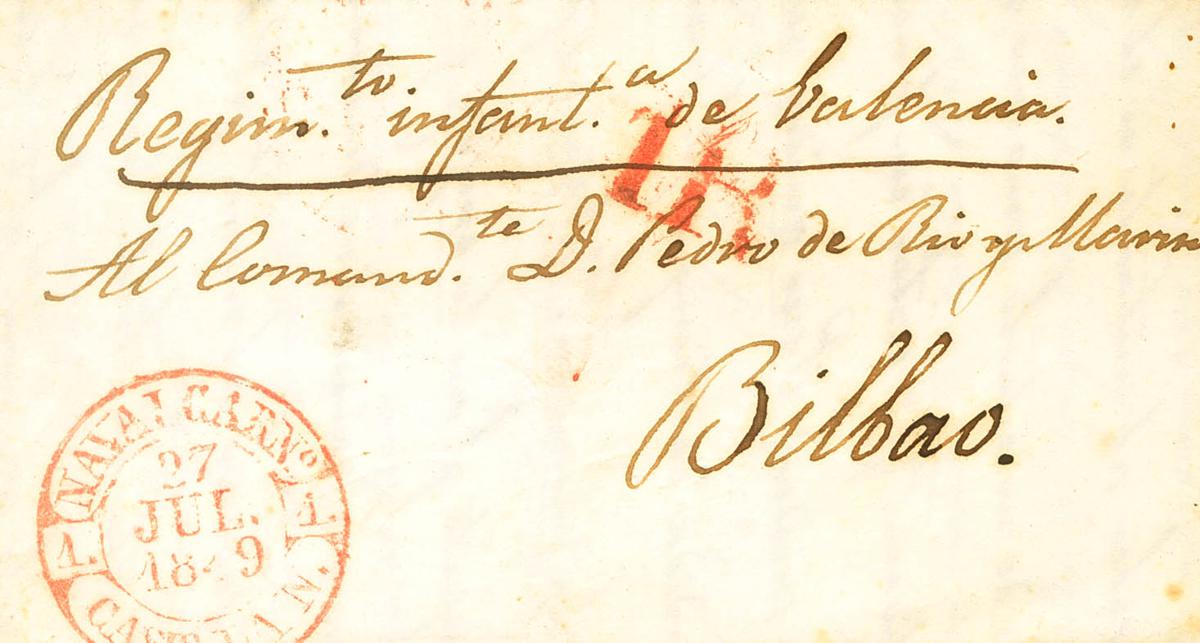 Regim.to infant.a de Valencia.
Al Comand.te D. Pedro de Rio y Marin
Bilbao.
NAVALCARNO
27
JUL.
1849
1. 1.
CAST.LA N.